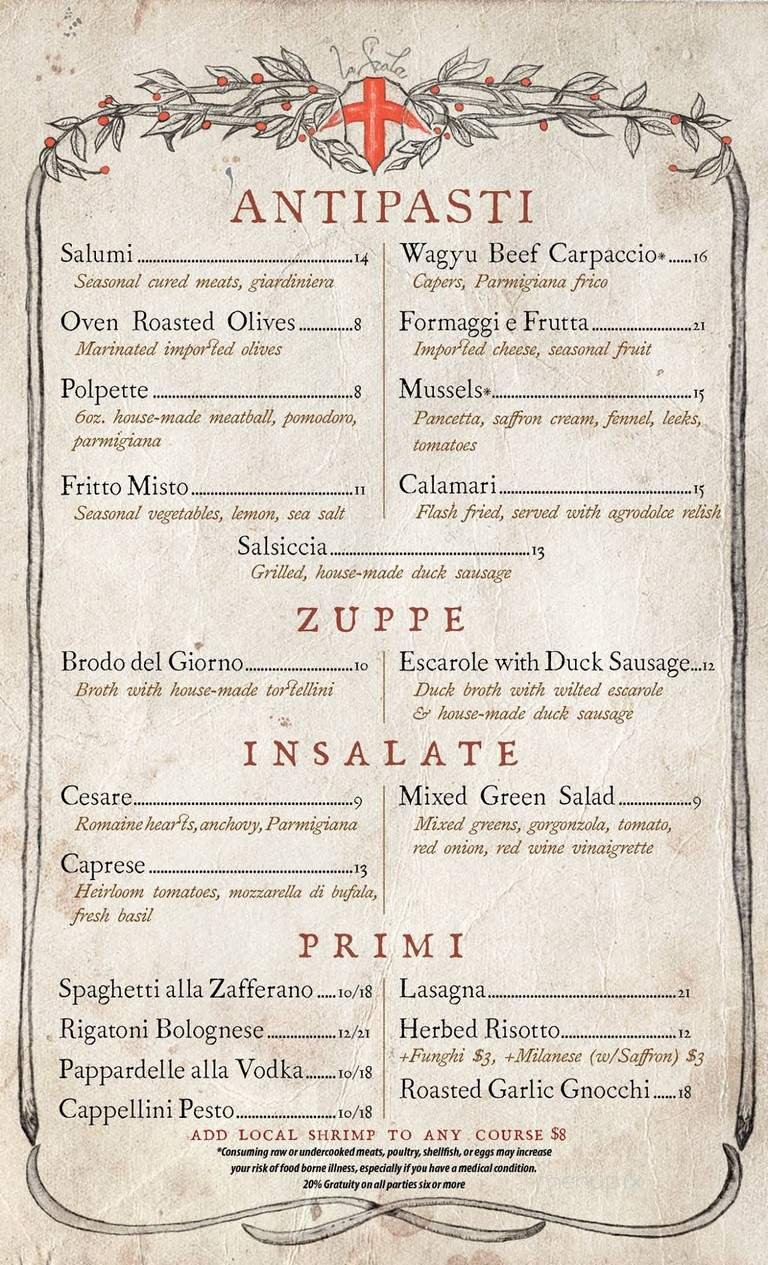 La Scala
ANTIPASTI
Salumi 14
Seasonal cured meats, giardiniera
Oven Roasted Olives 8
Marinated imported olives
Polpette 8
6oz. house-made meatball, pomodoro,
parmigiana
Fritto Misto 11
Seasonal vegetables, lemon, sea salt
Wagyu Beef Carpaccio* 16
Capers, Parmigiana frico
Formaggi e Frutta 21
Imported cheese, seasonal fruit
Mussels* 15
Pancetta, saffron cream, fennel, leeks,
tomatoes
Calamari 15
Flash fried, served with agrodolce relish
Salsiccia 13
Grilled, house-made duck sausage
ZUPPE
Brodo del Giorno 10
Broth with house-made tortellini
Escarole with Duck Sausage...12
Duck broth with wilted escarole
& house-made duck sausage
INSALATE
Cesare 9
Romaine hearts, anchovy, Parmigiana
Caprese 13
Heirloom tomatoes, mozzarella di bufala,
fresh basil
Mixed Green Salad 9
Mixed greens, gorgonzola, tomato,
red onion, red wine vinaigrette
PRIMI
Spaghetti alla Zafferano 10/18
Rigatoni Bolognese 12/21
Pappardelle alla Vodka 10/18
Cappellini Pesto 10/18
Lasagna 21
Herbed Risotto 12
+Funghi $3, +Milanese (w/Saffron) $3
Roasted Garlic Gnocchi 18
ADD LOCAL SHRIMP TO ANY COURSE $8
*Consuming raw or undercooked meats, poultry, shellfish, or eggs may increase
your risk of food borne illness, especially if you have a medical condition.
20% Gratuity on all parties six or more